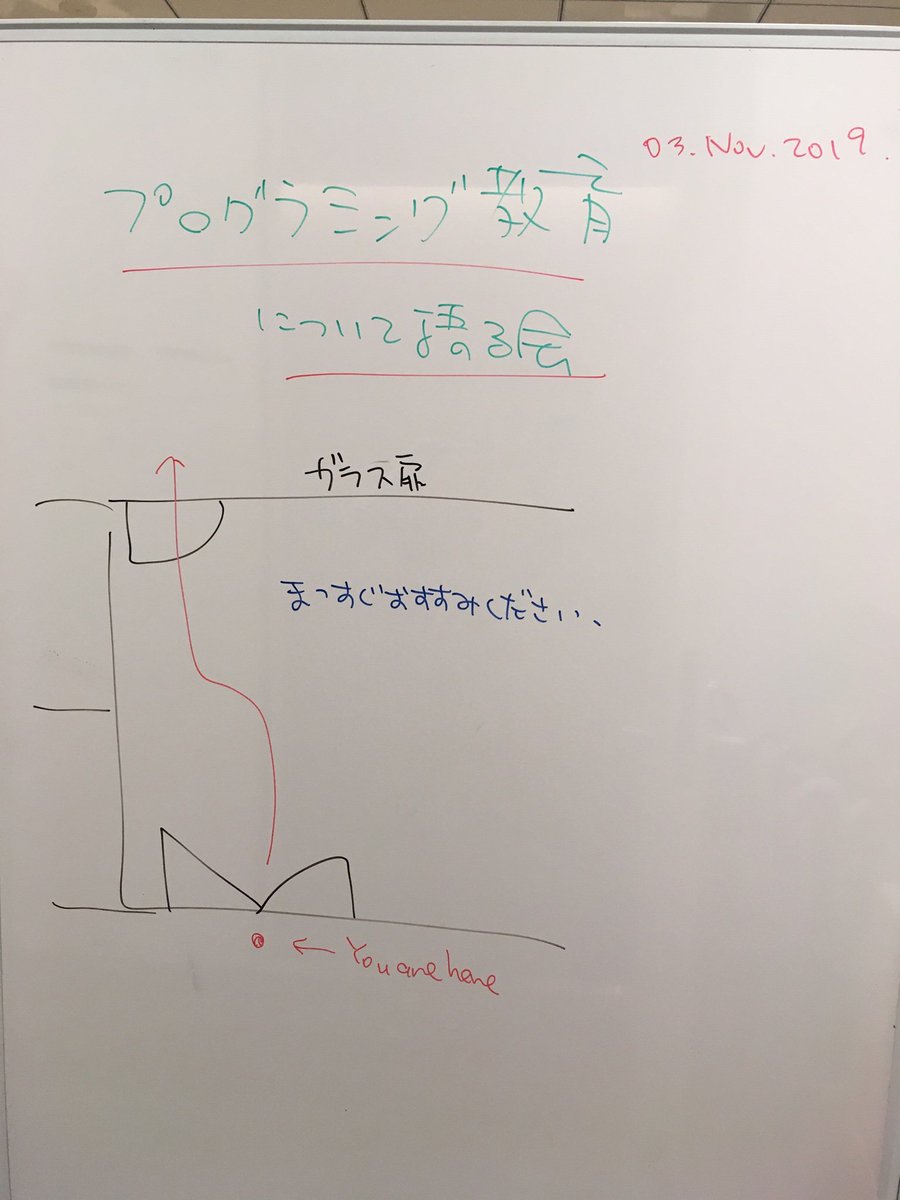 03.Nov.2019.
プログラミング教育
について語る会
ガラス扉
まっすぐおすすみください、
← You are here